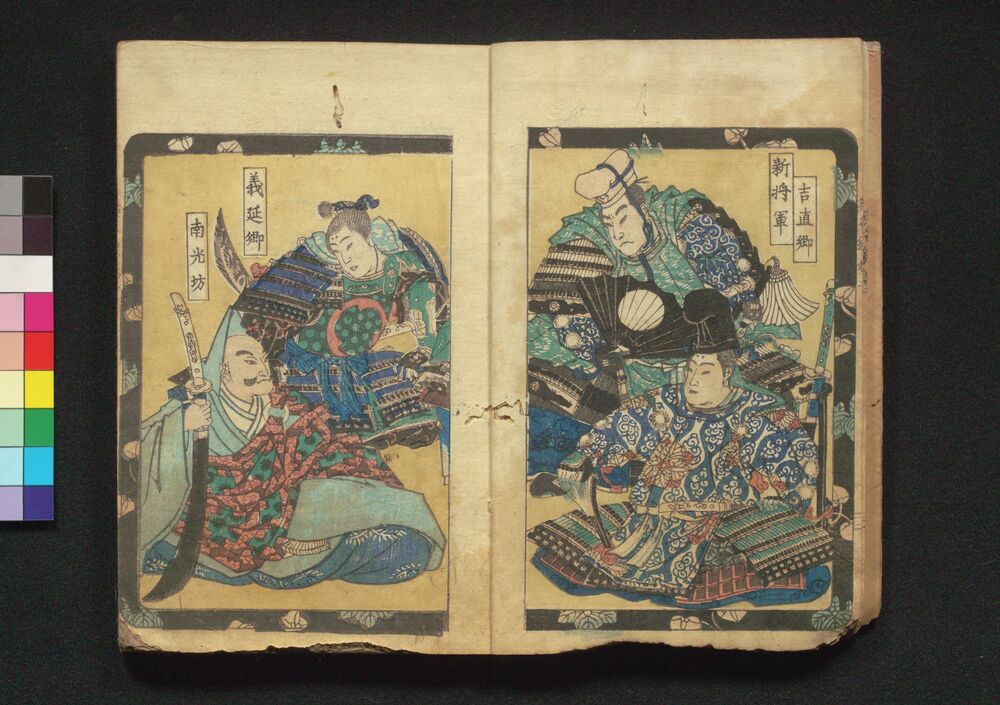 吉直卿
新将軍
義延卿
南光坊